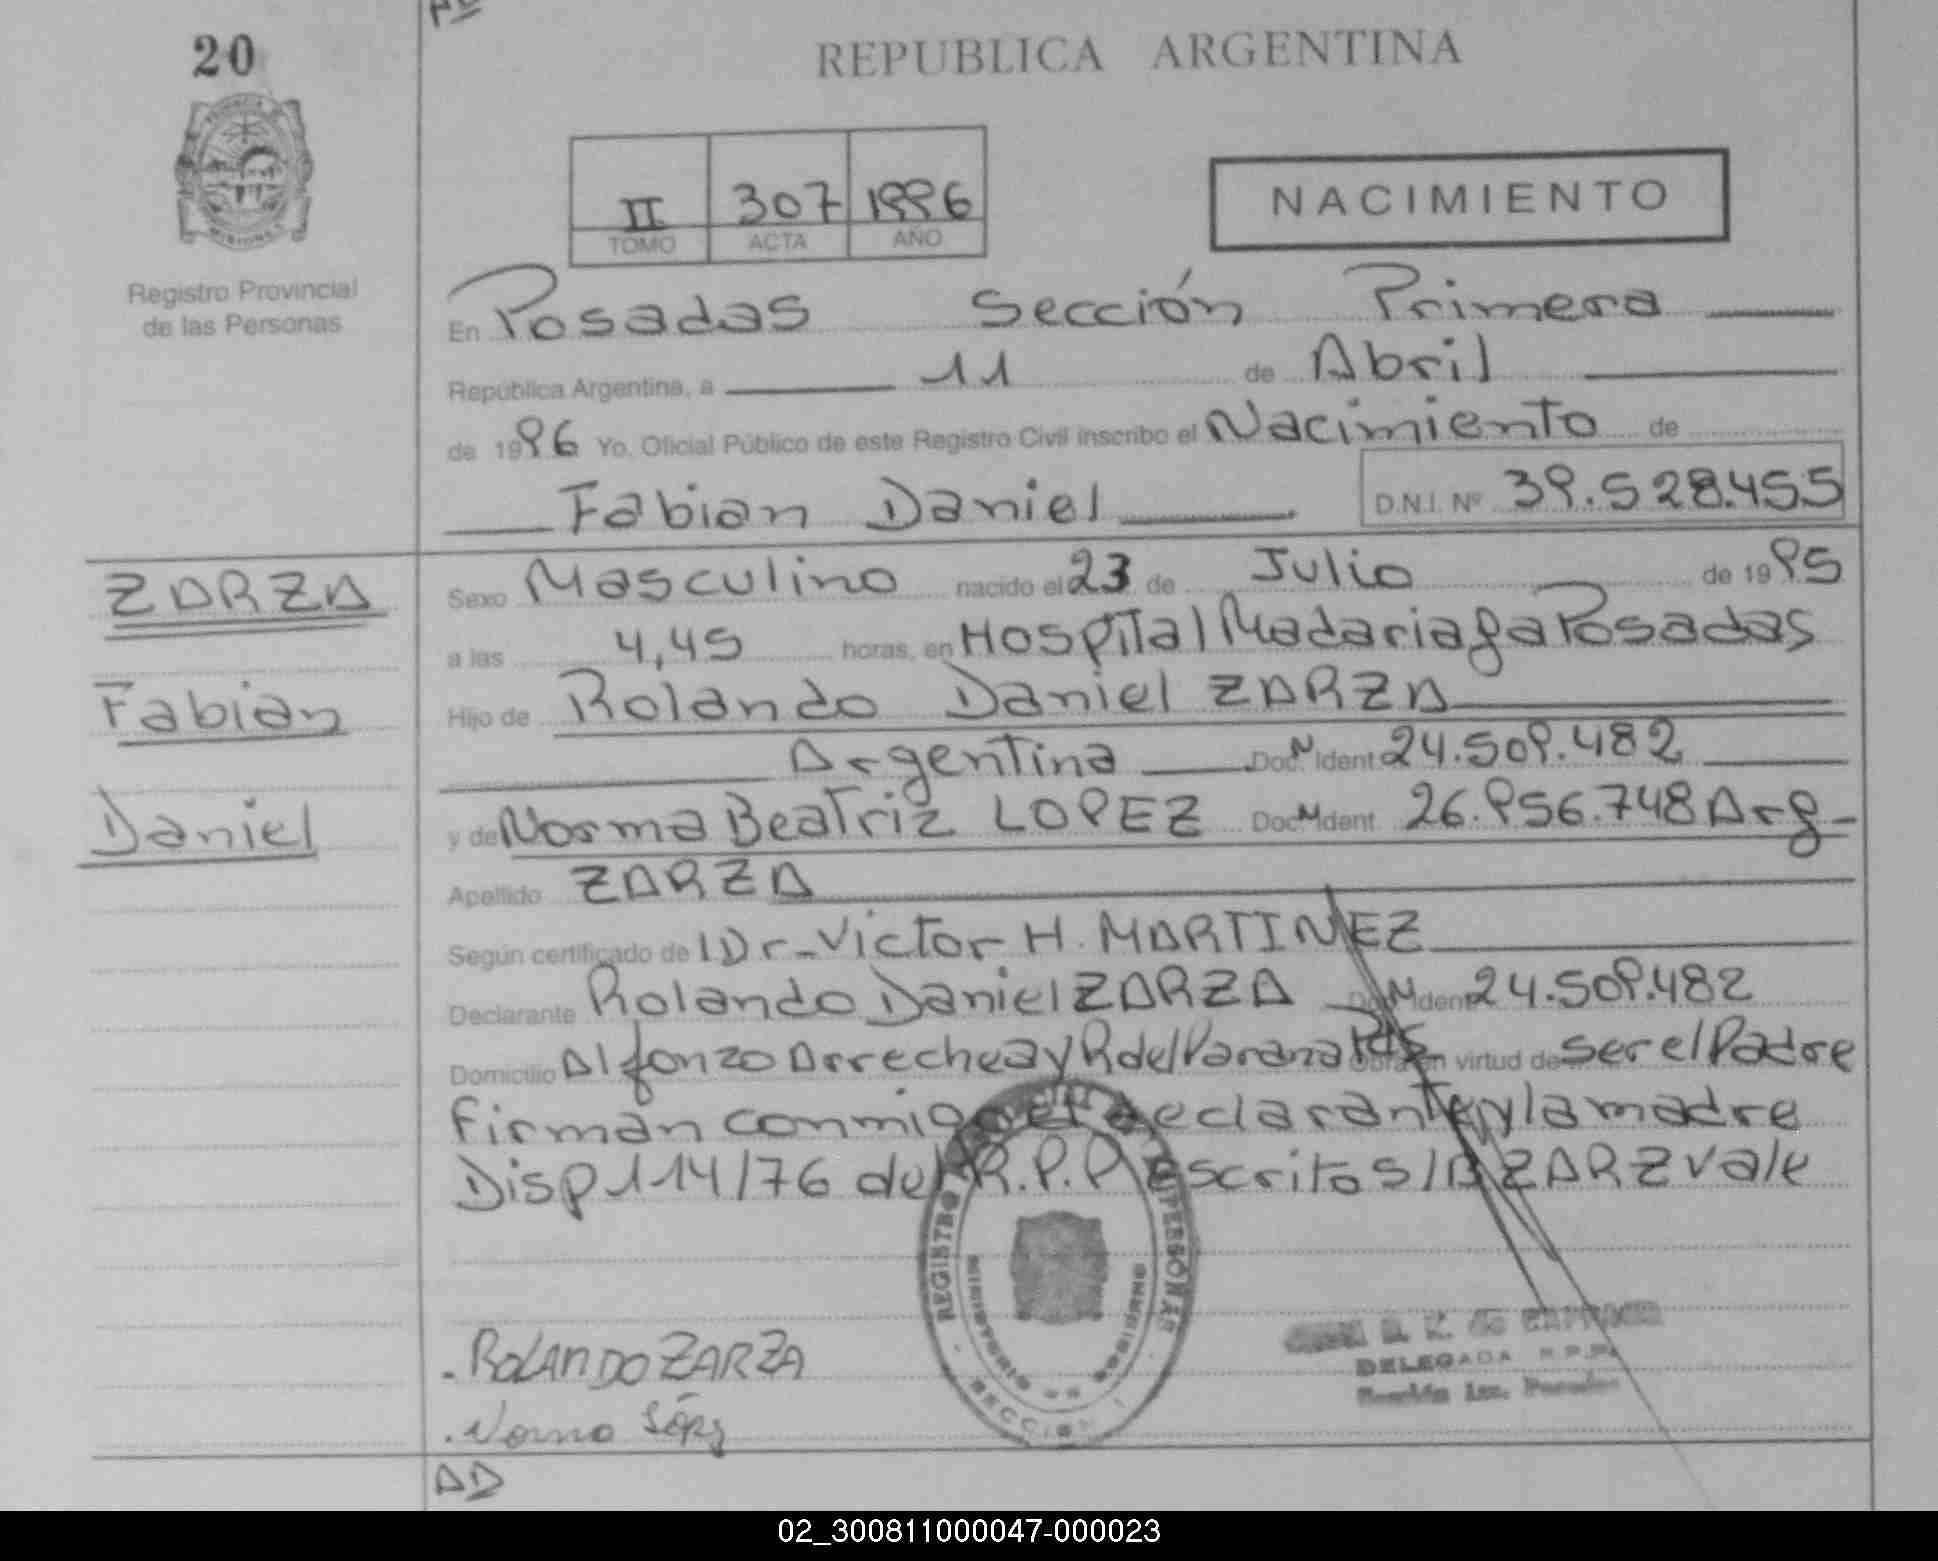 20
REPUBLICA ARGENTINA
II 307 1996
TOMO ACTA AÑO
NACIMIENTO
Registro Provincial
de las Personas
En Posadas Sección Primera
República Argentina, a 11 de Abril
de 1996 Yo, Oficial Público de este Registro Civil inscribo el Nacimiento de
Fabian Daniel D.N.I. Nº 39.528.455
ZARZA
Fabian
Daniel
Sexo Masculino nacido el 23 de Julio de 1995
a las 4,45 horas, en Hospital Madariaga Posadas
Hijo de Rolando Daniel ZARZA
Argentina Doc. N Ident. 24.509.482
y de Norma Beatriz LOPEZ Doc. N Ident. 26.956.748 Arg-
Apellido ZARZA
Según certificado de Dr. Victor H. MARTINEZ
Declarante Rolando Daniel ZARZA Doc. N Ident. 24.509.482
Domicilio Alfonzo Arrechea y R del Parana Pdas Obra en virtud de ser el Padre
Firman conmigo el declarante y la madre
Disp 114/76 del R.P.P escrito s/B ZARZ vale
REGISTRO PERSONAS
MINISTERIO DE GOBIERNO
SECCION 1
ROLANDO ZARZA
Norma López
DELEGADA R.P.P.
Sección 1ra. Posadas
AD
02_300811000047-000023